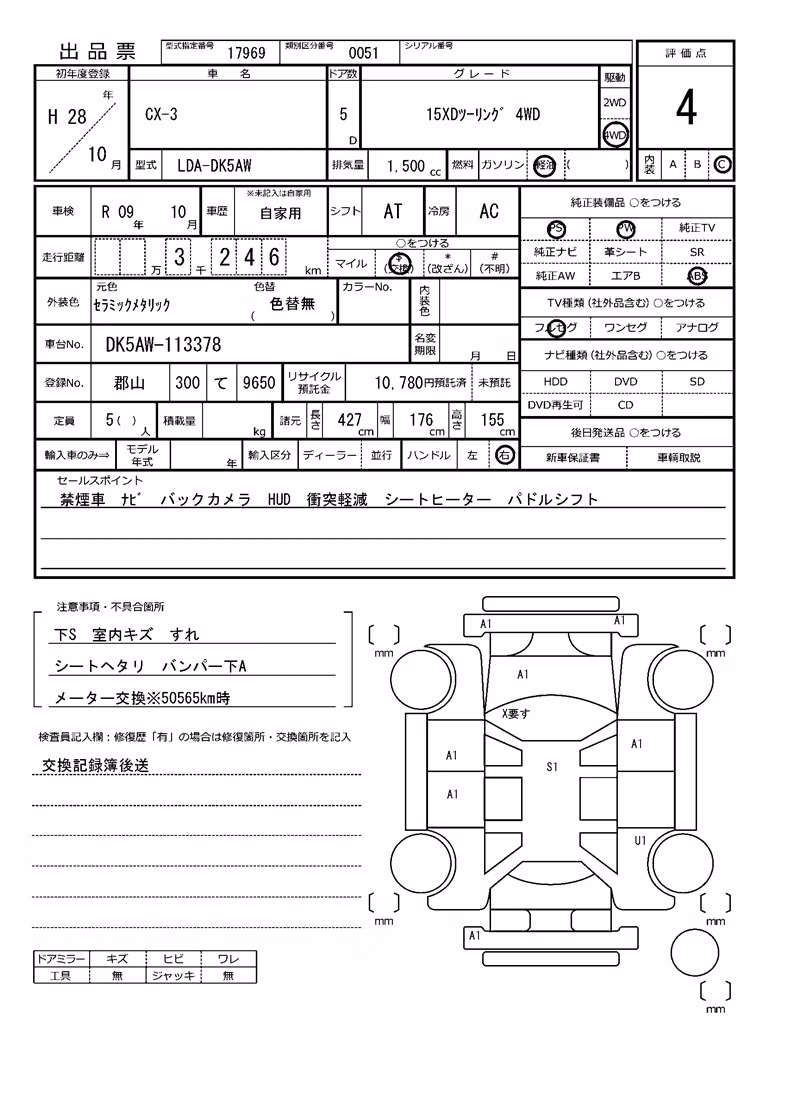 出品票 型式指定番号 17969 類別区分番号 0051 シリアル番号
評価点 4
内装 A B C
初年度登録 車名 ドア数 グレード 駆動
H 28 年 10 月 CX-3 5 D 15XDツーリング 4WD 2WD 4WD
型式 LDA-DK5AW 排気量 1,500 cc 燃料 ガソリン 軽油 ( )
車検 R 09 年 10 月 車歴 ※未記入は自家用 自家用 シフト AT 冷房 AC
走行距離 万 3 千 2 4 6 km ○をつける
マイル $ (交換) * (改ざん) # (不明)
外装色 元色 セラミックメタリック 色替 ( 色替無 ) カラーNo. 内装色
車台No. DK5AW-113378 名変期限 月 日
登録No. 郡山 300 て 9650 リサイクル預託金 10,780円預託済 未預託
定員 5( ) 人 積載量 kg 諸元 長さ 427 cm 幅 176 cm 高さ 155 cm
輸入車のみ⇒ モデル年式 年 輸入区分 ディーラー 並行 ハンドル 左 右
純正装備品 ○をつける
PS PW 純正TV
純正ナビ 革シート SR
純正AW エアB ABS
TV種類(社外品含む)○をつける
フルセグ ワンセグ アナログ
ナビ種類(社外品含む)○をつける
HDD DVD SD
DVD再生可 CD
後日発送品 ○をつける
新車保証書 車輌取説
セールスポイント
禁煙車 ナビ バックカメラ HUD 衝突軽減 シートヒーター パドルシフト
注意事項・不具合箇所
下S 室内キズ すれ
シートヘタリ バンパー下A
メーター交換※50565km時
検査員記入欄:修復歴「有」の場合は修復箇所・交換箇所を記入
交換記録簿後送
ドアミラー キズ ヒビ ワレ
工具 無 ジャッキ 無
A1 A1
mm mm
A1
X要す
A1 A1
S1
A1
U1
mm mm
A1
mm